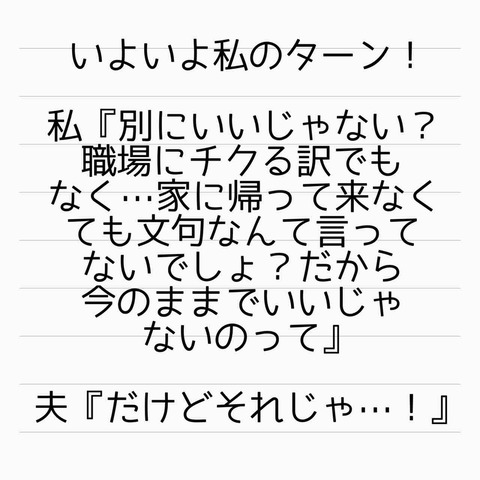 いよいよ私のターン！
私『別にいいじゃない？
職場にチクる訳でも
なく…家に帰って来なく
ても文句なんて言って
ないでしょ？だから
今のままでいいじゃ
ないのって』
夫『だけどそれじゃ…！』